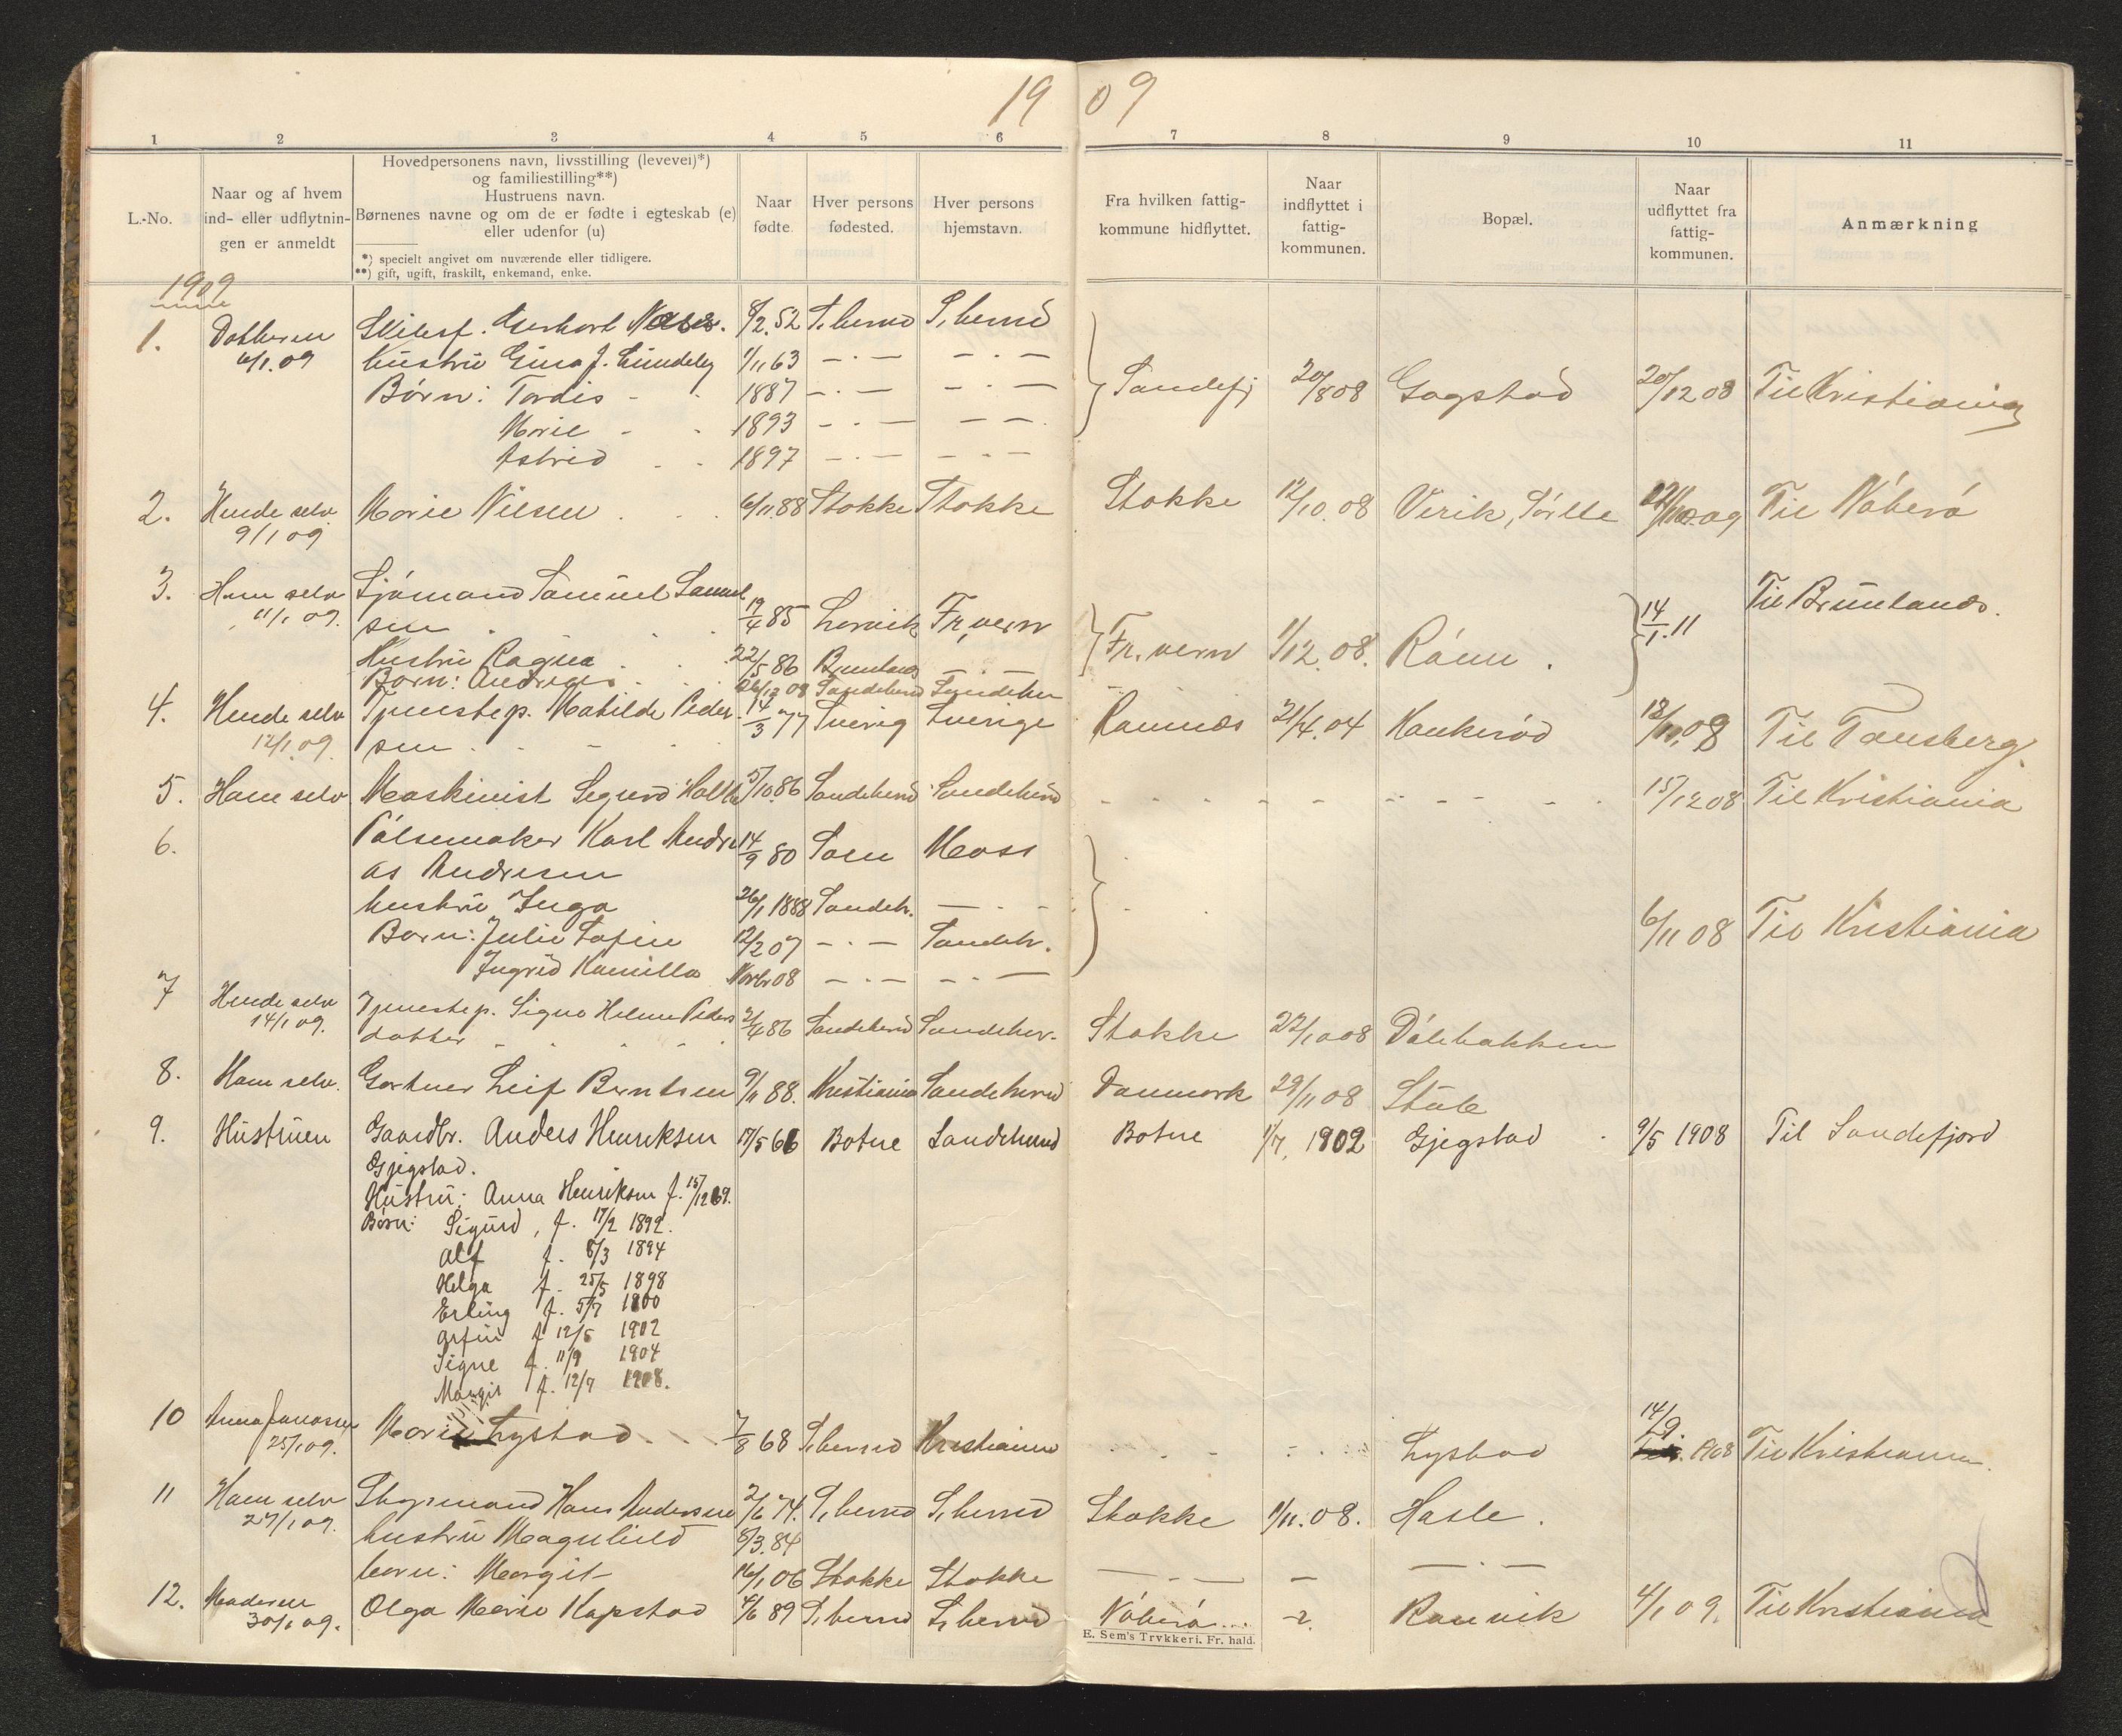 19 09
1 2 3 4 5 6 7 8 9 10 11
L.-No.
Naar og af hvem
ind- eller udflytnin-
gen er anmeldt
Hovedpersonens navn, livsstilling (levevei)*)
og familiestilling**)
Hustruens navn.
Børnenes navne og om de er fødte i egteskab (e)
eller udenfor (u)
*) specielt angivet om nuværende eller tidligere.
**) gift, ugift, fraskilt, enkemand, enke.
Naar
fødte.
Hver persons
fødested.
Hver persons
hjemstavn.
Fra hvilken fattig-
kommune hidflyttet.
Naar
indflyttet i
fattig-
kommunen.
Bopæl.
Naar
udflyttet fra
fattig-
kommunen.
Anmærkning
1909
1. Datteren Skibsf. Gerhart 8/2.52 S.herred S.herred
6/1.09 hustru Gina J. Lindeby 1/11 63 — · — — · —
Børn: Tordis - - 1887 — · — — · — Sandefj 20/8 08 Gogstad 20/12 08 Til Kristiania
Marie - - 1893 — · — — —
Astrid - - 1897 — · — — · —
2. Hende selv Marie Nilsen 6/11.88 Stokke Stokke Stokke 12/10.08 Virik, 09 Til Nøterø
9/1 09
3. Ham selv Sjømand Samuel Samuel
11/1 09. sen 19/4 85 Larvik Fr.vern Fr.vern 1/12.08. Rønn. 14/1.11 Til Brunlanæs.
Hustru Ragna 22/5 86 Brunlanæs — · —
Barn: Andreas 26/12 08 Sandeherred Sandeher
4. Hende selv Tjenestep. Matilde Peder- 14/3 77 Sverig Sverige Ramnæs 21/4.04 Kamkerød 18/10.08 Til Tønsberg
12/1.09. sen
5. Ham selv Maskinist Sigurd Holtke 5/10.86 Sandeherred Sandeherred 15/12 08 Til Kristiania
6. Pølsemaker Karl Andre 14/9 80 Soen Moss
as Andresen
hustru Inga 26/1 1888 Sandeh. — · -
Børn: Julie Sofie 12/2 07 — · — Sandeh. 6/11 08 Til Kristiania
Ingrid Kamilla Novbr 08 — · — — · —
7 Hende selv Tjenestep. Signe Helene Peders
14/1 09. datter 2/4 86 Sandeherred Sandeher. Stokke 22/10 08 Dølebakken
8. Ham selv. Gartner Leif Berntsen 9/11 88. Kristiania Sandeherred Danmark 29/11 08 Stub
9. Hustruen Gaardbr. Anders Henriksen 17/5 66 Botne Sandeherred Botne 1/7. 1902 Gjegstad 9/5 1908 Til Sandefjord
Gjegstad.
Hustru: Anna Henriksen f. 15/12 69.
Børn: Sigurd, f. 17/2 1892.
Alf f. 8/3 1894
Helga f. 25/5 1898
Erling f. 5/7 1900
Arfin f. 12/5 1902
Signe f. 11/9 1904
Margit f. 12/7 1908.
10 Anna Jonassen Marie Lystad 7/8 68 S.herred Kristiania Lystad 14/9. 1908 Til Kristiania.
25/1 09.
11 Ham selv Styrmand Hans Andersen 2/6 74. S.herred S.herred Stokke 1/11.08. Hasle.
27/1 09. hustru Magnhild 8/3.84
barn: Margit 16/1 06 Stokke Stokke — · — — — · —
12. Moderen Olga Marie Kapstad 4/6 89 S.herred S.herred Nøterø ? Ranvik 4/1 09. Til Kristiania
30/1 09.
E. Sem's Trykkeri. Fr. hald.